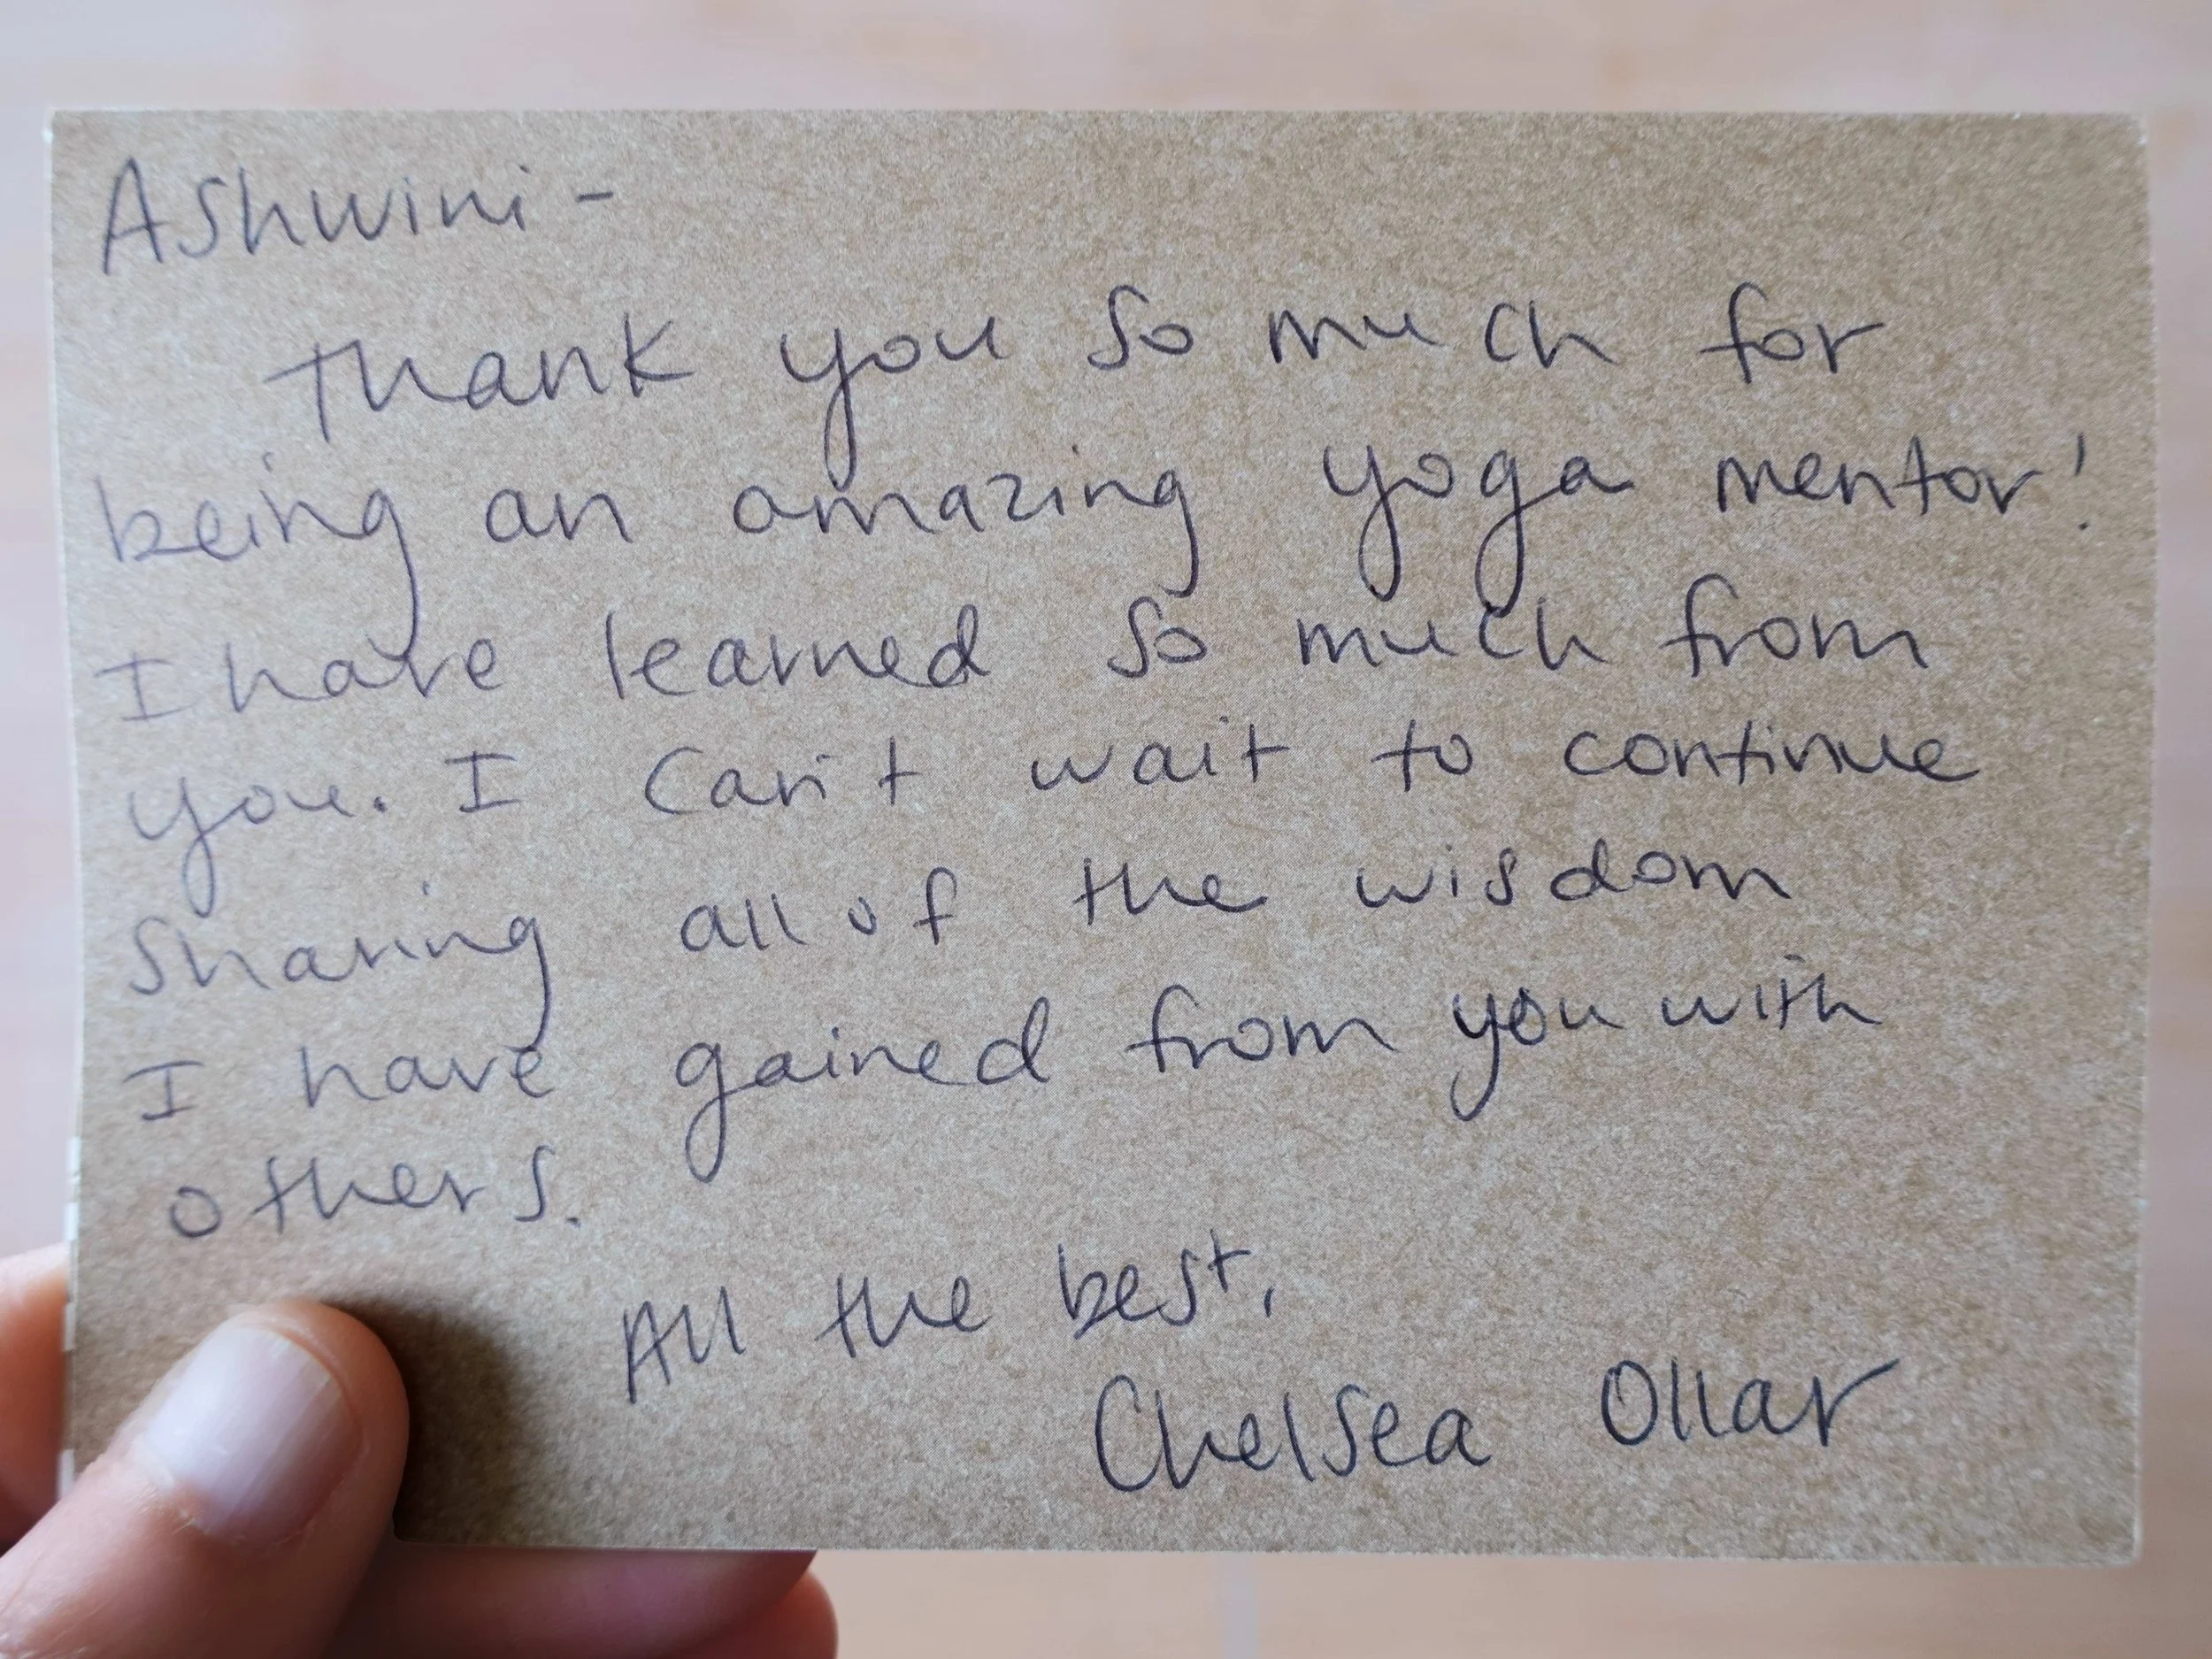 Ashwini -
Thank you so much for
being an amazing yoga mentor!
I have learned so much from
you. I can't wait to continue
sharing all of the wisdom
I have gained from you with
others.
All the best,
Chelsea Ollar